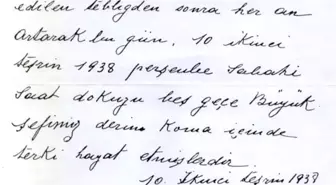 edilen tebliğden sonra her an
artarak bu gün, 10 ikinci
teşrin 1938 perşembe sabahi
saat dokuzu beş geçe Büyük
şefimiz derin Koma içinde
terki hayat etmişlerdir.
10. İkinci teşrin 1938